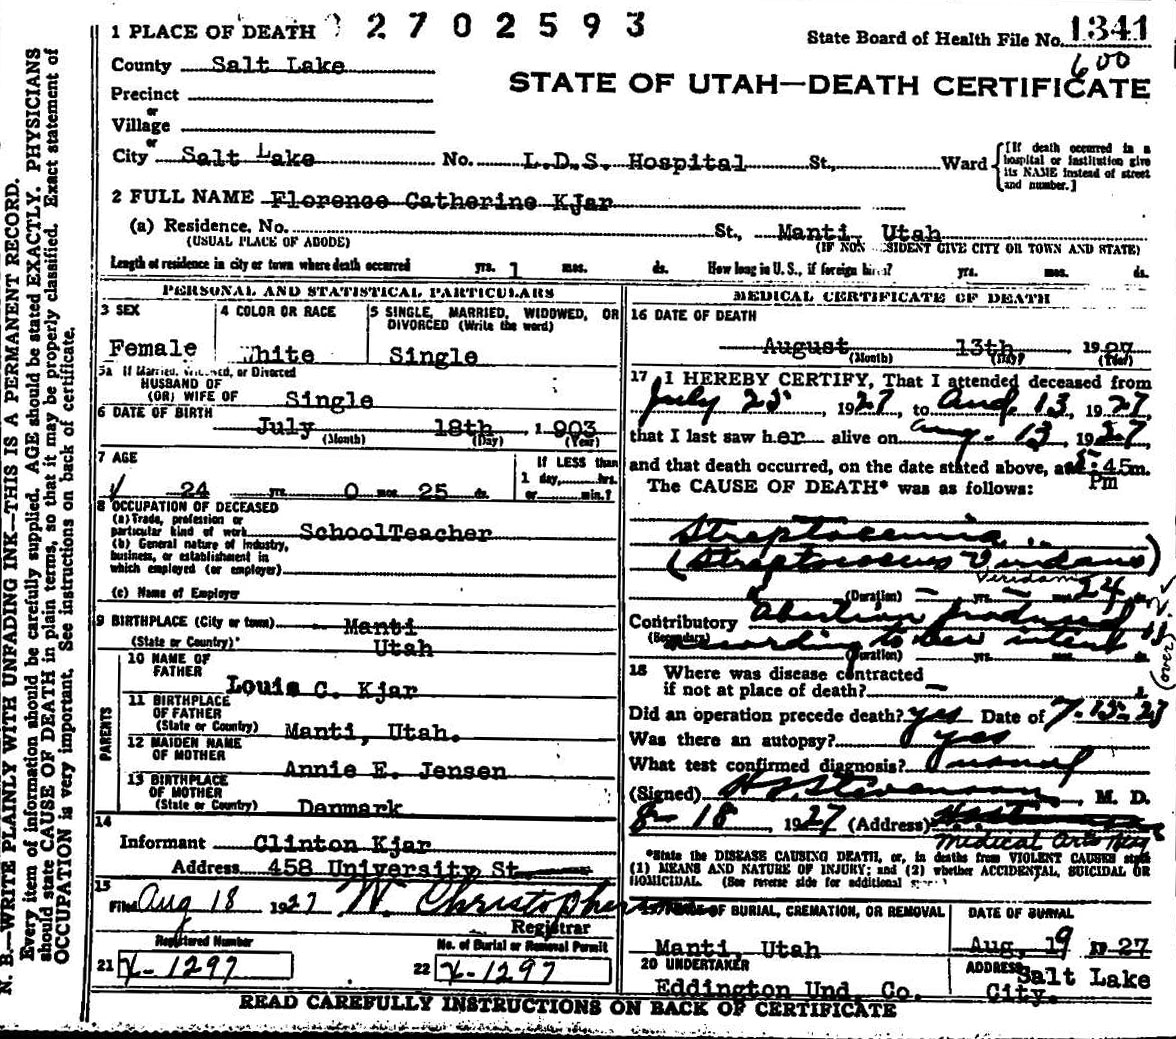 1 PLACE OF DEATH 2 7 0 2 5 9 3
State Board of Health File No. 1341
600
County Salt Lake
STATE OF UTAH—DEATH CERTIFICATE
Precinct
or
Village
or
City Salt Lake No. L.D.S. Hospital St., Ward
[If death occurred in a hospital or institution give its NAME instead of street and number.]
2 FULL NAME Florence Catherine Kjar
(a) Residence. No. St., Manti, Utah
(USUAL PLACE OF ABODE) (IF NON SIDENT GIVE CITY OR TOWN AND STATE)
Length of residence in city or town where death occurred yrs. 1 mos. ds. How long in U. S., if foreign birth? yrs. mos. ds.
PERSONAL AND STATISTICAL PARTICULARS
3 SEX 4 COLOR OR RACE 5 SINGLE, MARRIED, WIDOWED, OR DIVORCED (Write the word)
Female White Single
5a If Married, Widowed, or Divorced
HUSBAND OF
(OR) WIFE OF Single
6 DATE OF BIRTH
July 18th 1903
(Month) (Day) (Year)
7 AGE If LESS than
1 day, hrs.
24 yrs. 0 mos. 25 ds. or min.?
8 OCCUPATION OF DECEASED
(a) Trade, profession or
particular kind of work SchoolTeacher
(b) General nature of industry,
business, or establishment in
which employed (or employer)
(c) Name of Employer
9 BIRTHPLACE (City or town) Manti
(State or Country) Utah
PARENTS
10 NAME OF
FATHER Louis C. Kjar
11 BIRTHPLACE
OF FATHER
(State or Country) Manti, Utah.
12 MAIDEN NAME
OF MOTHER Annie E. Jensen
13 BIRTHPLACE
OF MOTHER
(State or Country) Danmark
14
Informant Clinton Kjar
Address 458 University St
15
Filed Aug 18 1927 W. Christopher
Registrar
Registered Number No. of Burial or Removal Permit
21 X-1297 22 X-1297
MEDICAL CERTIFICATE OF DEATH
16 DATE OF DEATH
August 13th 1927
(Month) (Day) (Year)
17 I HEREBY CERTIFY, That I attended deceased from
July 23, 1927, to Aug. 13, 1927
that I last saw her alive on Aug. 13, 1927
and that death occurred, on the date stated above, at 5:45m.
Pm
The CAUSE OF DEATH* was as follows:
Streptocemia
(Streptococcus Viridans)
Viridans
(Duration) — yrs. — mos. 24
Contributory Abortion produced
(Secondary) according to her intent
(Duration) yrs. mos. ds.
(over)
18 Where was disease contracted
if not at place of death? —
Did an operation precede death? yes Date of
Was there an autopsy? yes
What test confirmed diagnosis? usual
(Signed) H.S. Stevenson, M. D.
8-18, 1927 (Address)
Medical Arts Bldg
*State the DISEASE CAUSING DEATH, or, in deaths from VIOLENT CAUSES state
(1) MEANS AND NATURE OF INJURY; and (2) whether ACCIDENTAL, SUICIDAL OR
HOMICIDAL. (See reverse side for additional
OF BURIAL, CREMATION, OR REMOVAL DATE OF BURIAL
Manti, Utah Aug, 19 1927
20 UNDERTAKER ADDRESS
Eddington Und. Co. Salt Lake
City.
READ CAREFULLY INSTRUCTIONS ON BACK OF CERTIFICATE
N. B.—WRITE PLAINLY WITH UNFADING INK—THIS IS A PERMANENT RECORD.
Every item of information should be carefully supplied. AGE should be stated EXACTLY. PHYSICIANS
should state CAUSE OF DEATH in plain terms, so that it may be properly classified. Exact statement of
OCCUPATION is very important. See instructions on back of certificate.